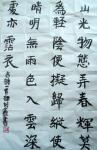 山光物態弄春輝莫
為輕陰便擬歸縱使
晴明無雨色入雲深
處亦霑衣